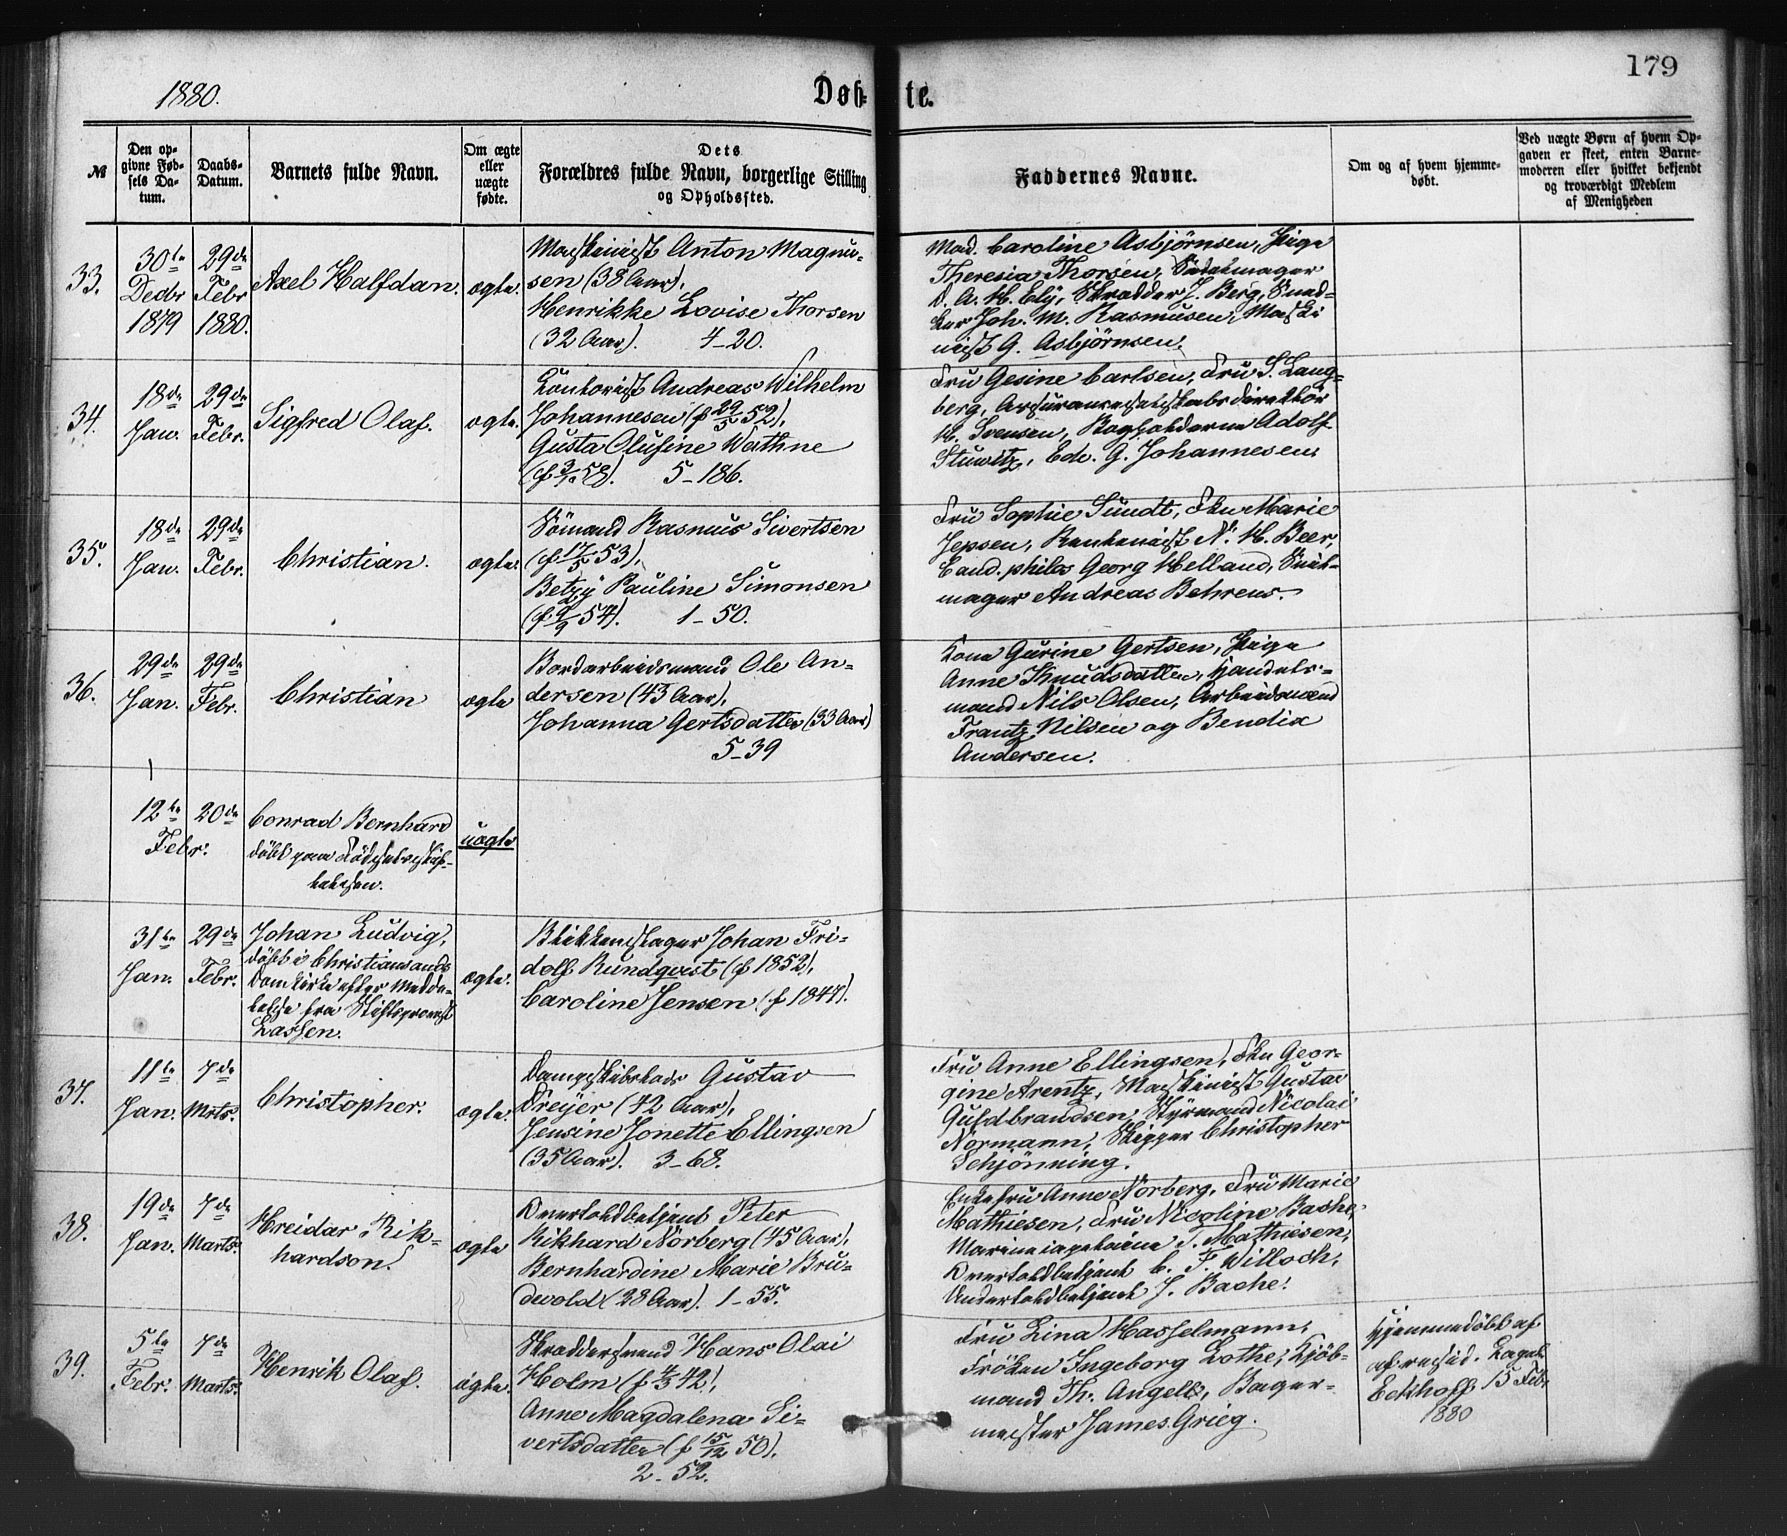 179
1880.
Døb-
te.
№
Den op-
givne Fød-
sels Da-
tum.
Daabs-
Datum.
Barnets fulde Navn.
Om ægte
eller
uægte
fødte.
Dets
Forældres fulde Navn, borgerlige Stilling
og Opholdssted.
Faddernes Navne.
Om og af hvem hjemme-
døbt.
Ved uægte Børn af hvem Op-
gaven er skeet, enten Barne-
moderen eller hvilket bekjendt
og troværdigt Medlem
af Menigheden
33.
30te
Decbr
1879
29de
Febr
1880.
Axel Halfdan.
ægte.
Maskinist Anton Magnu-
sen (38 Aar),
Henrikke Lovise Thorsen
(32 Aar). 4-20.
Mad. Caroline Asbjørnsen, Pige
Theresia Thorsen,
D. A. H. Ely, Skrædder J. Berg, Sned-
ker Joh. M. Rasmusen, Maski
nist G. Asbjørnsen.
34.
18de
Jan.
29de
Febr.
Sigfred Olaf.
ægte.
Contorist Andreas Wilhelm
Johannesen (f 29/5 52),
Gusta Olufine Wathne
58). 5-186.
Fru Gesine Carlsen, Fru S. Lang-
berg, Assuranceselskabsdirektör
H. Svensen, Bogholderne Adolf
Stuwitz, Edv. G. Johannesen.
35.
18de
Jan.
29de
Febr.
Christian.
ægte.
Sömand Rasmus Sivertsen
(f 17/5 53),
Betzy Pauline Simonsen
(f 9/9 54). 1-50.
Fru Sophie Sundt, Frk Marie
Jepsen, N. H. Beer,
Cand. philos Georg Helland, Skib-
mager Andreas Behrens.
36.
29de
Jan.
29de
Febr.
Christian
ægte
Bordarbeidsmand Ole An-
dersen (43 Aar),
Johanna Gertsdatter (33 Aar)
5-39
Kone Gurine Gertsen, Pige
Anne Knudsdatter, Handels-
mand Nils Olsen, Arbeidsmænd
Frantz Nilsen og Bendix
Andersen.
12te
20de
Febr.
Conrad Bernhard
döbt paa Födselsstif-
telsen.
uægte
31te
Jan.
29de
Febr.
Johan Ludvig,
döbt i Christiansands
Domkirke efter Medde-
lelse fra Stiftsprovst
Lassen.
ægte.
Blikkenslager Johan Fri-
dolf Rundqvist (f 1852),
Caroline Jensen (f 1847).
37.
11te
Jan.
7de
Mrts.
Christopher.
ægte.
Dampskibslods Gustav
Dreyer (42 Aar),
Jensine Jonette Ellingsen
(35 Aar). 3-68.
Fru Anne Ellingsen, Frk Geor-
gine Arentz, Maskinist Gustav
Guldbrandsen, Styrmand Nicolai
Normann, Skipper Christopher
Schjönning.
38.
19de
Jan.
7de
Marts.
Hreidar Rik-
hardson.
ægte
Overtoldbetjent Peter
Rikhard Norberg (45 Aar),
Bernhardine Marie Bru-
devold (28 Aar). 1-55.
Enkefru Anne Norberg, Fru Marie
Mathiesen, Fru Nicoline Bache,
Marinekapetaine T. Mathiesen,
Overtoldbetjent C. F. Willoch,
Undertoldbetjent J. Bache.
39.
5te
Febr.
7de
Marts.
Henrik Olaf.
ægte.
Skræddersvend Hans Olai
Holm (f 4/3 42),
Anne Magdalena Si-
vertsdatter (f 15/12 50).
2-52.
Fru Lina Hasselmann,
Fröken Ingeborg Lothe, Kjöb-
mand Th. Angell, Bager-
mester James Grieg.
Hjemmedöbt af
af resid. Capel.
Eckhoff 15 Febr
1880